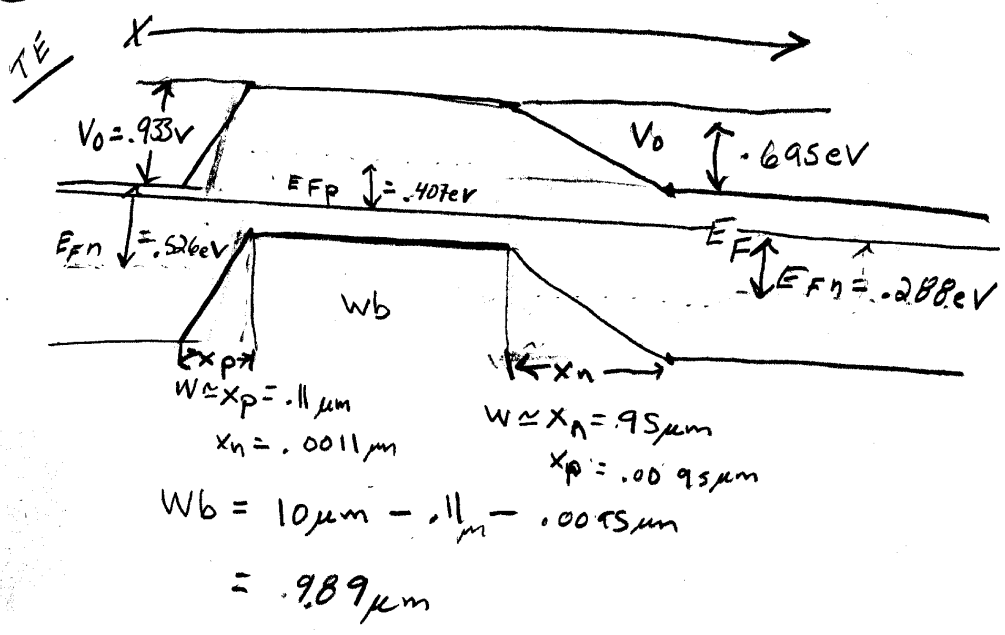 TE
X
V₀ = .933v
V₀
.695eV
EFp = .407eV
EFn = .526eV
EF
EFn = .288eV
Wb
xp
xn
W ≃ xp = .11 μm
xn = .0011 μm
W ≃ xn = .95μm
xp = .0095μm
Wb = 10μm - .11μm - .0095μm
= 9.89μm